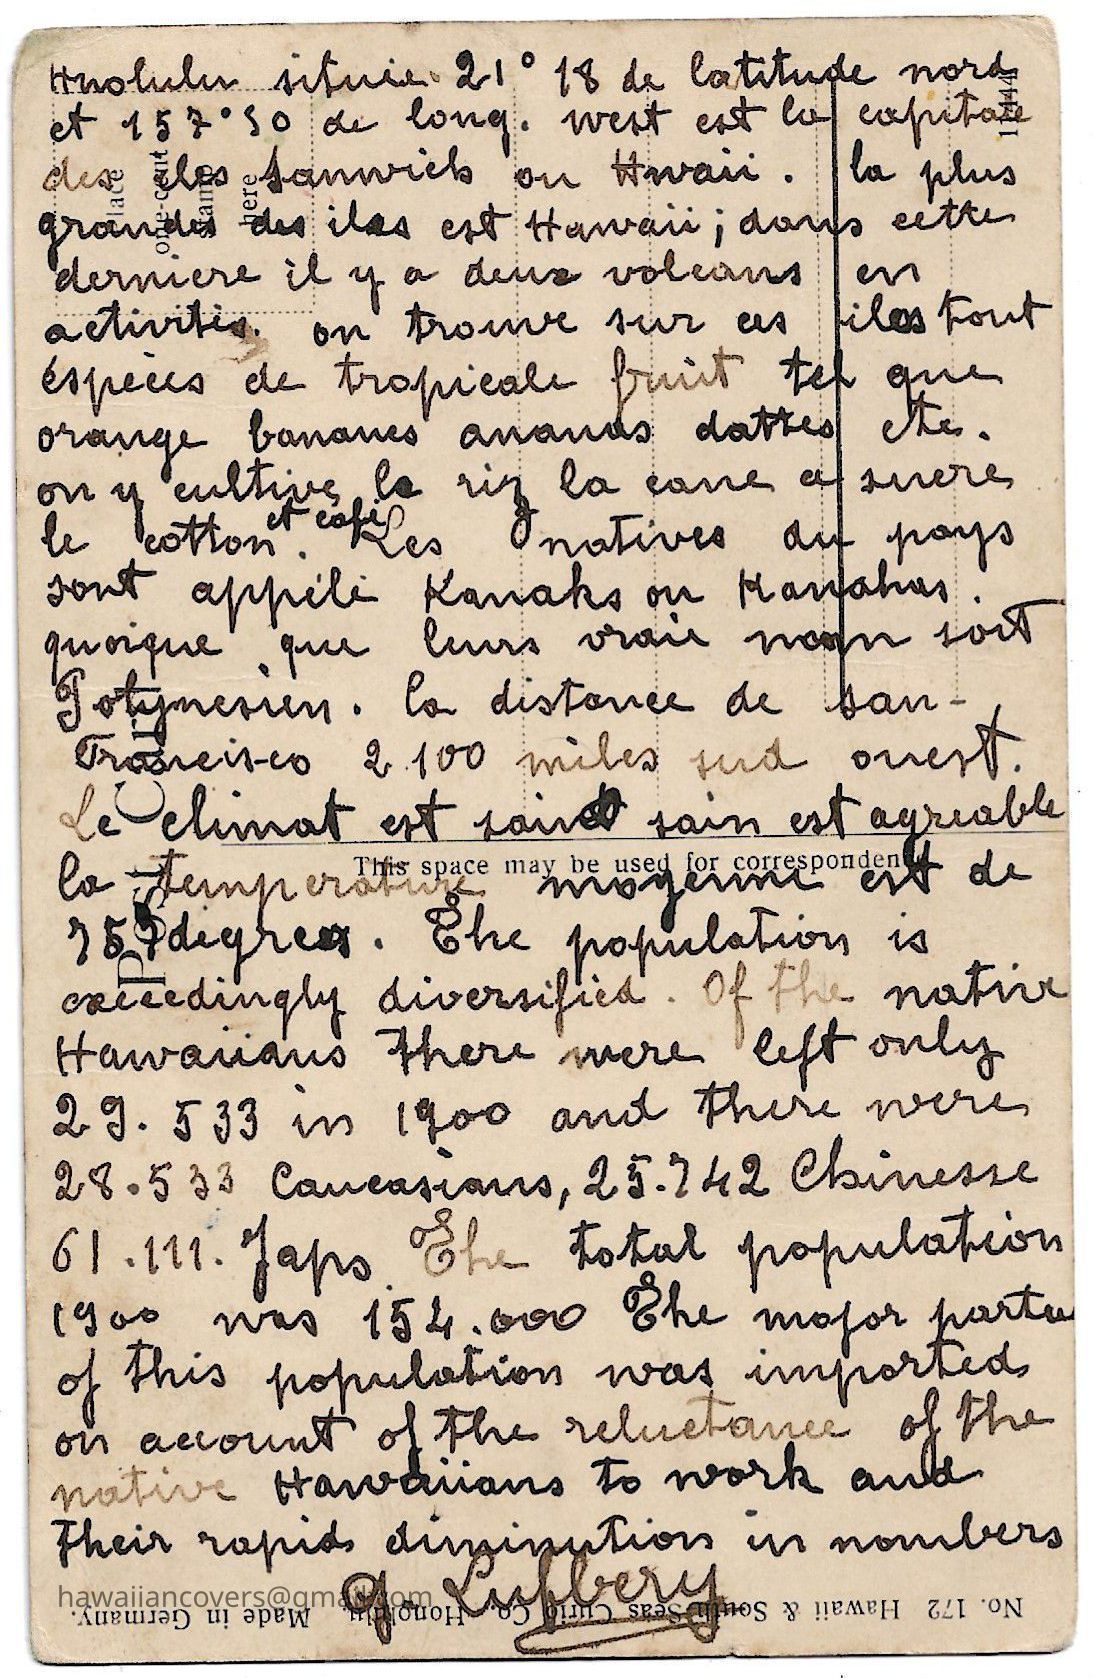 Hnolulu situié. 21° 18 de latitude nord
et 157° 50 de long. west est la capitale
des iles Sanwich ou Hwaii. la plus
grandes des iles est Hawaii; dans cette
derniere il y a deux volcans en
activités. on trouve sur ces iles tout
éspèces de tropicale fruit tel que
orange bananes ananas dattes etc.
on y cultive le riz la cane a sucre
le cotton et café. Les natives du pays
sont appélé Kanaks ou Kanakas.
quoique que leurs vraie nom soit
Polynesien. la distance de san-
Francisco 2.100 miles sud ouest.
Le climat est sain est agreable
la temperature moyenne est de
75 degrees. The population is
exceedingly diversified. Of the native
Hawaiians there were left only
29.533 in 1900 and there were
28.533 Caucasians, 25.742 Chinesse
61.111. Japs The total population
1900 was 154.000 The major parte
of this population was imported
on account of the reluctance of the
native Hawaiians to work and
their rapid diminution in nombers
G Lufbery
Place one-cent stamp here
This space may be used for correspondence
hawaiiancovers@gmail.com
No. 172 Hawaii & South Seas Curio Co., Honolulu. Made in Germany.